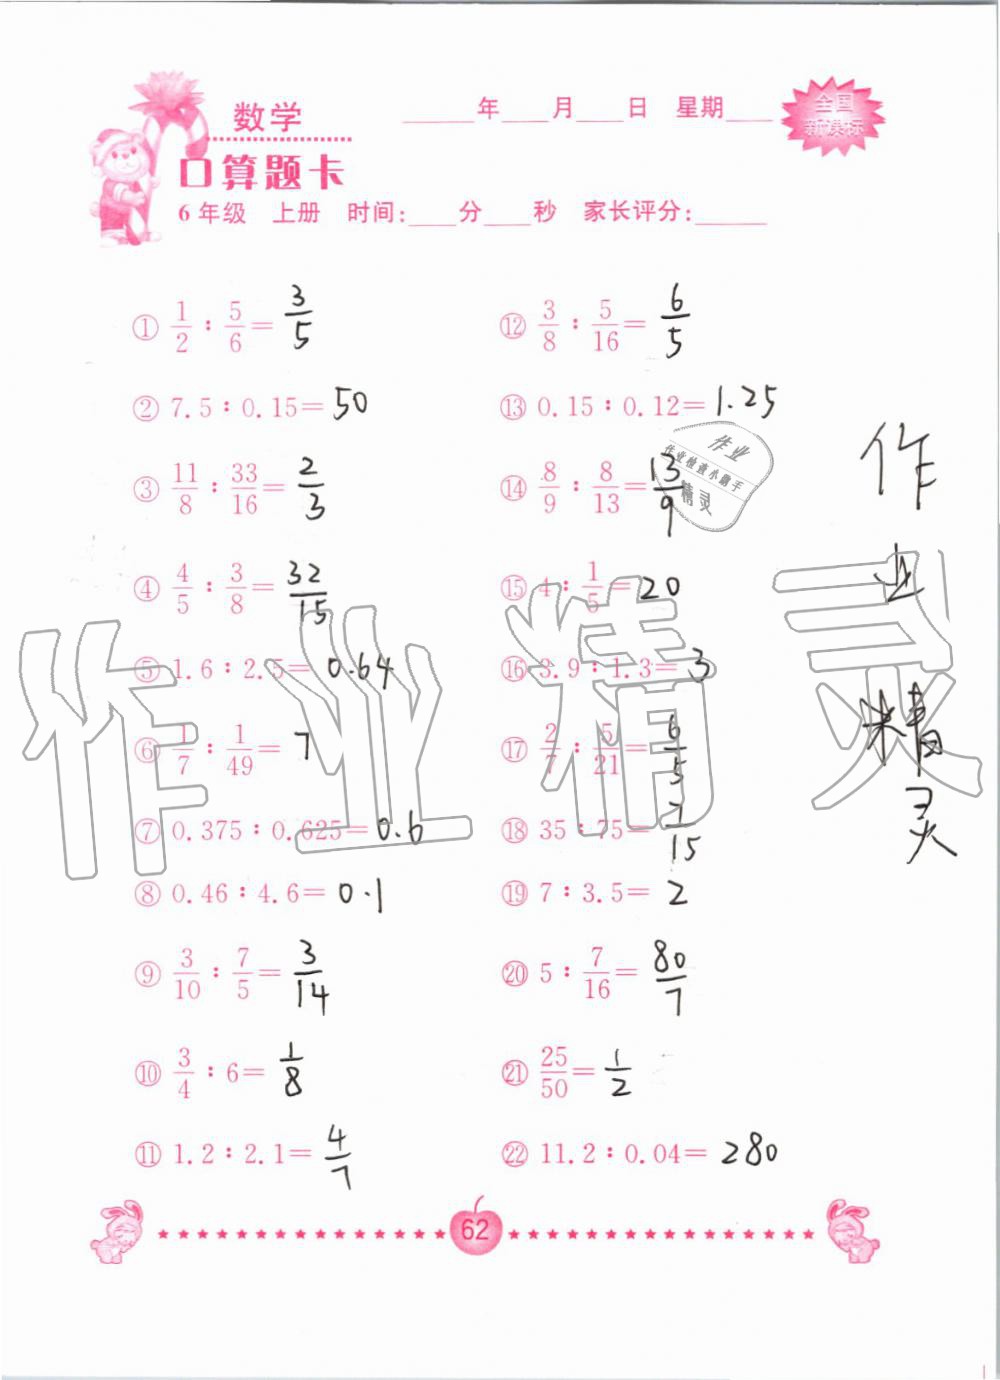 数学
____年____月____日 星期____
全国
新课标
口算题卡
6年级 上册 时间:____分____秒 家长评分:______
① 1/2 : 5/6 = 3/5
② 7.5 : 0.15 = 50
③ 11/8 : 33/16 = 2/3
④ 4/5 : 3/8 = 32/15
⑤ 1.6 : 2.5 = 0.64
⑥ 1/7 : 1/49 = 7
⑦ 0.375 : 0.625 = 0.6
⑧ 0.46 : 4.6 = 0.1
⑨ 3/10 : 7/5 = 3/14
⑩ 3/4 : 6 = 1/8
⑪ 1.2 : 2.1 = 4/7
⑫ 3/8 : 5/16 = 6/5
⑬ 0.15 : 0.12 = 1.25
⑭ 8/9 : 8/13 = 13/9
⑮ 4 : 1/5 = 20
⑯ 3.9 : 1.3 = 3
⑰ 2/7 : 5/21 = 6/5
⑱ 35 : 75 = 7/15
⑲ 7 : 3.5 = 2
⑳ 5 : 7/16 = 80/7
㉑ 25/50 = 1/2
㉒ 11.2 : 0.04 = 280
作业
作业检查小助手
精灵
作业精灵
作业精灵
62